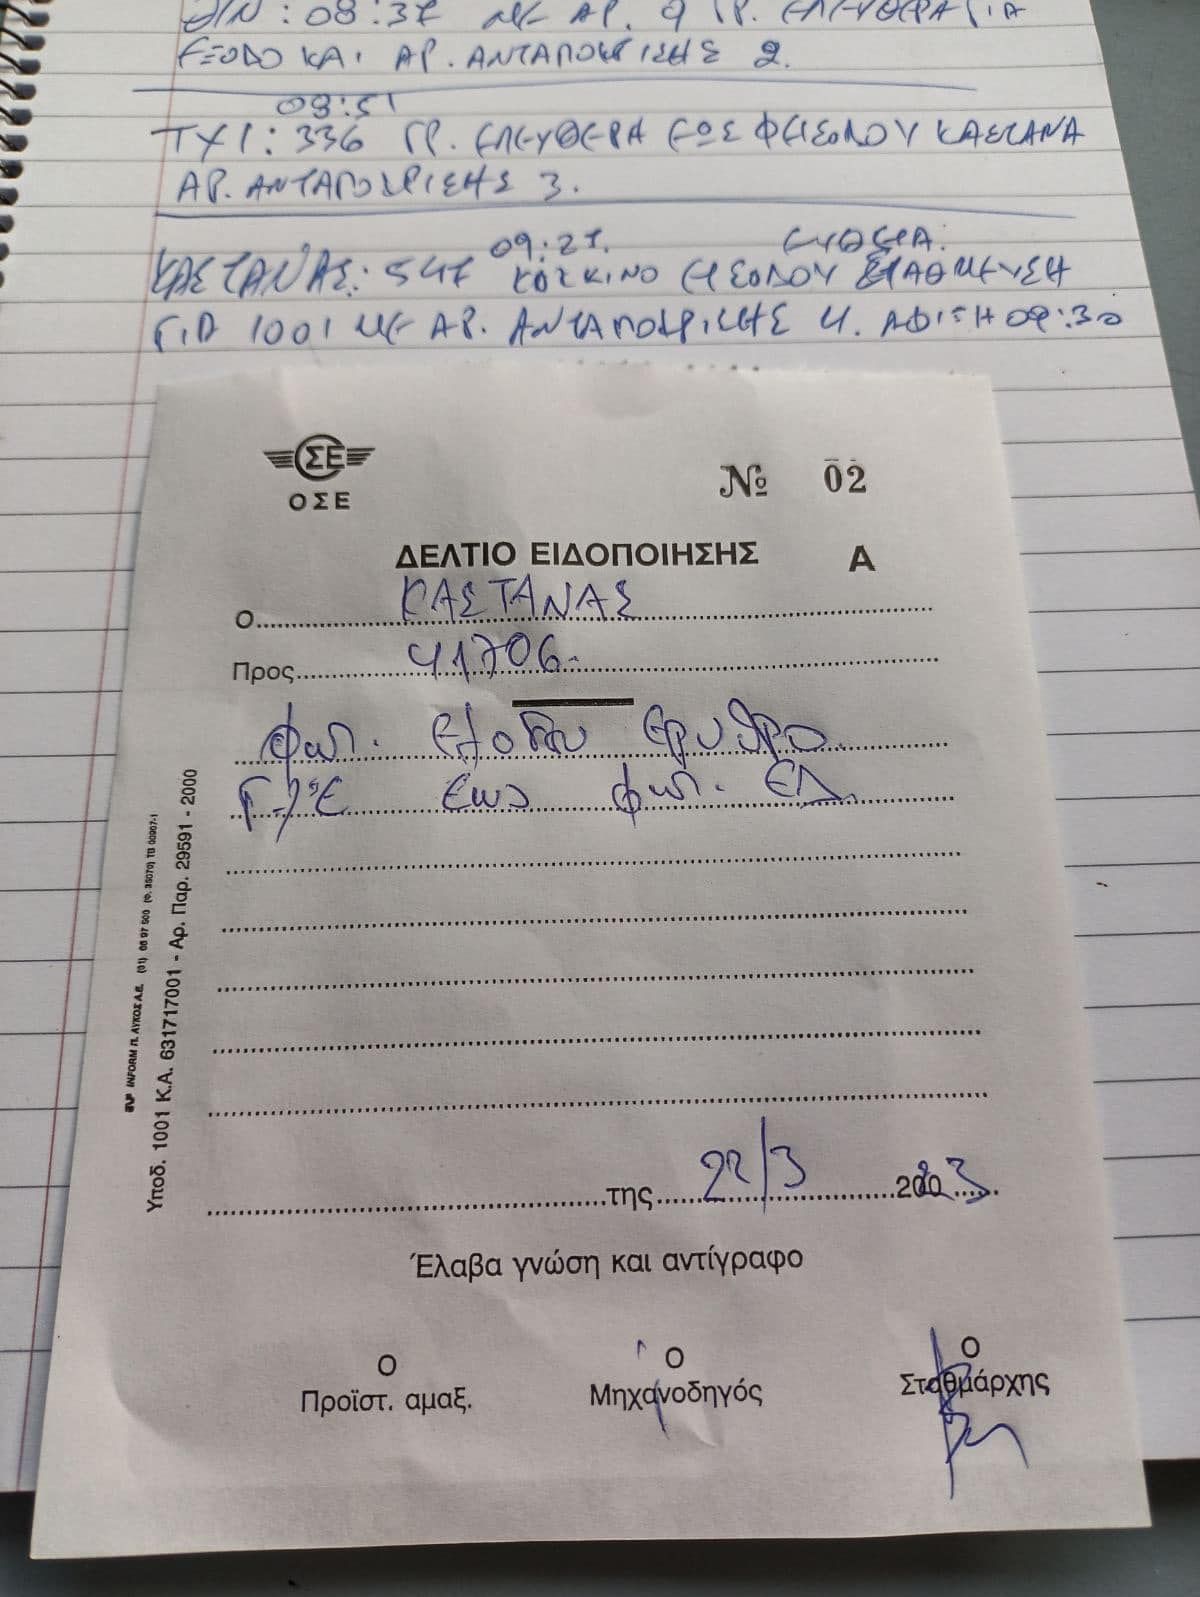 08:37 ΜΕ ΑΡ. 9 ΓΡ. ΕΛΕΥΘΕΡΑ ΓΙΑ
ΕΞΟΔΟ ΚΑΙ ΑΡ. ΑΝΤΑΠΟΚΡΙΣΗΣ 2.
08:51
ΤΧ1: 336 ΓΡ. ΕΛΕΥΘΕΡΑ ΕΩΣ ΦΕΙΣΟΔΟΥ ΚΑΣΤΑΝΑ
ΑΡ. ΑΝΤΑΠΟΚΡΙΣΗΣ 3.
09:21. ΕΥΘΕΙΑ.
ΚΑΣΤΑΝΑΣ: 547 ΚΟΣΚΙΝΟ ΕΙΣΟΔΟΥ ΣΤΑΘΜΕΥΣΗ
1001 ΜΕ ΑΡ. ΑΝΤΑΠΟΚΡΙΣΗΣ 4. ΑΦΙΞΗ 09:30
ΣΕ
ΟΣΕ
№ 02
ΔΕΛΤΙΟ ΕΙΔΟΠΟΙΗΣΗΣ Α
Ο ΚΑΣΤΑΝΑΣ
Προς 41706.
φωτ. Εξόδου Ερυθρο
Γρ. Ε έως φωτ. ΕΔ.
της 22/3 2023
Έλαβα γνώση και αντίγραφο
Ο Ο Ο
Προϊστ. αμαξ. Μηχανοδηγός Σταθμάρχης
INFORM Π. ΛΥΚΟΣ Α.Ε. (01) 66 97 500 (Φ. 35070) ΤΘ 00907-1
Υποδ. 1001 Κ.Α. 631717001 - Αρ. Παρ. 29591 - 2000